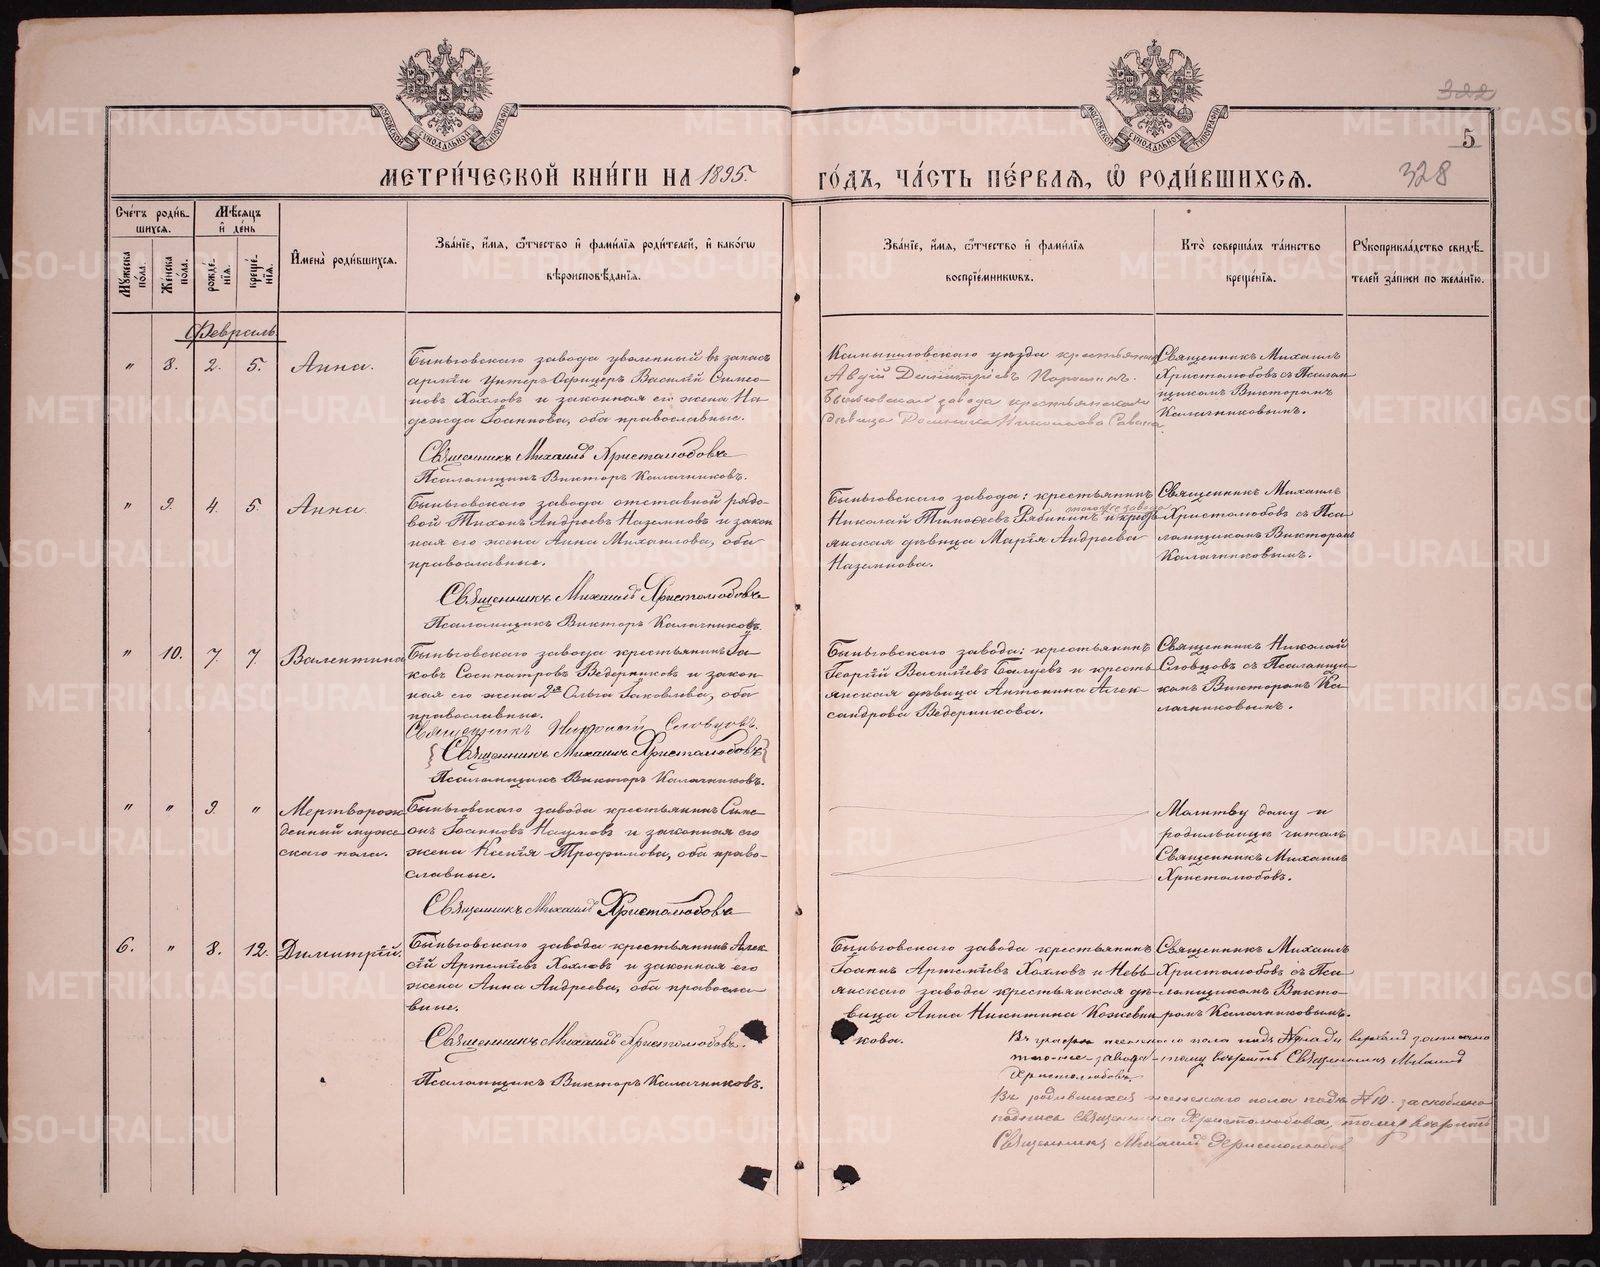 322
5
328
МЕТРИ́ЧЕСКОЙ КНИ́ГИ НА 1895. ГО́ДЪ, ЧА́СТЬ ПЕ́РВАЯ, Ѽ РОДИ́ВШИХСЯ.
Сче́тъ роди́в-
шихся.
Мꙋжеска по́ла.
Же́нска по́ла.
Мѣ́сяцъ
и҆ де́нь
рожде́-
нїѧ.
креще́-
нїѧ.
И҆мена̀ роди́вшихся.
Зва́нїе, и҆́мѧ, ѻ҆́тчество и҆ фами́лїѧ роди́телей, и҆ како́гѡ
вѣроисповѣ́данїѧ.
Зва́нїе, и҆́мѧ, ѻ҆́тчество и҆ фами́лїѧ
воспрїе́мниковъ.
Кто̀ соверша́лъ та́инство
креще́нїѧ.
Рꙋкоприкла́дство свидѣ́-
телей за́писи по жела́нїю.
Февраль.
" 8. 2. 5. Анна.
Быньговскаго завода уволенный въ запасъ
арміи Унтеръ-Офицеръ Василій Симео-
новъ Хохловъ и законная его жена На-
дежда Іоаннова, оба православные.
Священникъ Михаилъ Христолюбовъ
Псаломщикъ Викторъ Калачниковъ.
Камышловскаго уѣзда крестьянинъ
Авдій Димитріевъ
Быньговскаго завода крестьянская
дѣвица Николаева
Священникъ Михаилъ
Христолюбовъ съ Псалом-
щикомъ Викторомъ
Калачниковымъ.
" 9. 4. 5. Анна.
Быньговскаго завода отставной рядо-
вой Тихонъ Андреевъ Наземновъ и закон
ная его жена Анна Михаилова, оба
православные.
Священникъ Михаилъ Христолюбовъ
Псаломщикъ Викторъ Калачниковъ.
Быньговскаго завода: крестьянинъ
того же завода
Николай Тимофеевъ Рябининъ и кресть-
янская дѣвица Марія Андреева
Наземнова.
Священникъ Михаилъ
Христолюбовъ съ Пса-
ломщикомъ Викторомъ
Калачниковымъ.
" 10. 7. 7. Валентина
Быньговскаго завода крестьянинъ Іа-
ковъ Сосипатровъ Ведерниковъ и закон-
ная его жена 2ая Ольга Іаковлева, оба
православные.
Священникъ Николай Словцовъ.
{Священникъ Михаилъ Христолюбовъ}
Псаломщикъ Викторъ Калачниковъ.
Быньговскаго завода: крестьянинъ
Георгій Васильевъ и кресть-
янская дѣвица Антонина Алек-
сандрова Ведерникова.
Священникъ Николай
Словцовъ съ Псаломщи-
комъ Викторомъ Ка-
лачниковымъ.
" " 9. " Мертворож
денный муже-
скаго пола.
Быньговскаго завода крестьянинъ Симе-
онъ Іоанновъ Наумовъ и законная его
жена Ксенія Трофимова, оба право-
славные.
Священникъ Михаилъ Христолюбовъ
Молитву дому и
родильницѣ читалъ
Священникъ Михаилъ
Христолюбовъ.
6. " 8. 12. Димитрій.
Быньговскаго завода крестьянинъ Алек-
сій Артеміевъ Хохловъ и законная его
жена Анна Андреева, оба правосла-
вные.
Священникъ Михаилъ Христолюбовъ.
Псаломщикъ Викторъ Калачниковъ.
Быньговскаго завода крестьянинъ
Іоаннъ Артеміевъ Хохловъ и Невь-
янскаго завода крестьянская дѣ-
вица Анна Никитина Кожевни
кова.
Священникъ Михаилъ
Христолюбовъ съ Пса-
ломщикомъ Викто-
ромъ Калачниковымъ.
Въ графѣ женскаго пола подъ № записано
того-же-завода - тому вѣрить Священникъ Михаилъ
Христолюбовъ.
Въ родившихся женскаго пола подъ № 10. заскоблено
подпись священника Христолюбова, тому вѣрить
Священникъ Михаилъ Христолюбовъ
METRIKI.GASO-URAL.RU